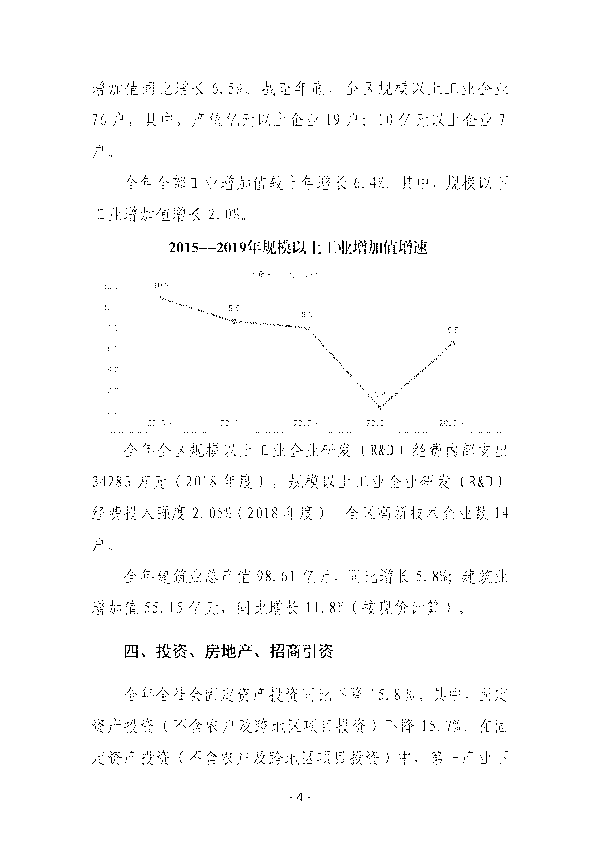 增加值同比增长 6.5%。截至年底，全区规模以上工业企业
76 户，其中，产值亿元以上企业 19 户；10 亿元以上企业 7
户。
全年全部工业增加值较上年增长 6.4%，其中，规模以下
工业增加值增长 2.0%。
2015—2019年规模以上工业增加值增速
全年全区规模以上工业企业研发（R&D）经费内部支出
万元（2018 年度），规模以上工业企业研发（R&D）
经费投入强度 2.05%（2018 年度），全区高新技术企业数 14
户。
全年建筑业总产值 98.61 亿元，同比增长 5.8%；建筑业
增加值 55.15 亿元，同比增长 11.8%（按现价计算）。
四、投资、房地产、招商引资
全年全社会固定资产投资同比下降 15.8%，其中，固定
资产投资（不含农户及跨地区项目投资）下降 15.7%。在固
定资产投资（不含农户及跨地区项目投资）中，第一产业下
- 4 -